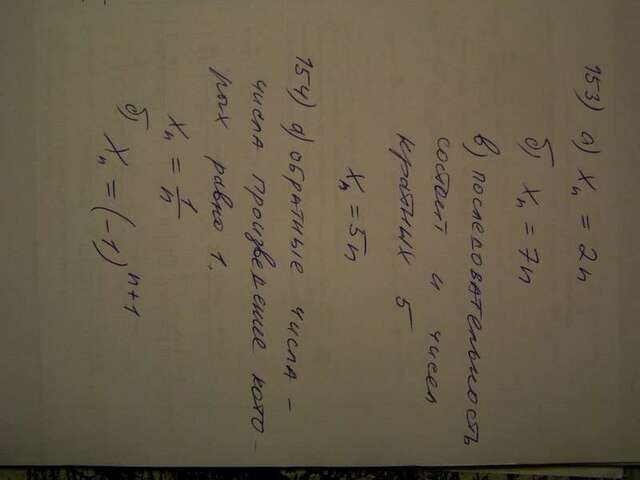 153) а) xₙ = 2n
б) xₙ = 7n
в) последовательность
состоит и чисел
кратных 5
xₙ = 5n
154) а) обратные числа -
числа произведение кото-
рых равно 1.
xₙ = 1/n
б) xₙ = (-1)ⁿ⁺¹